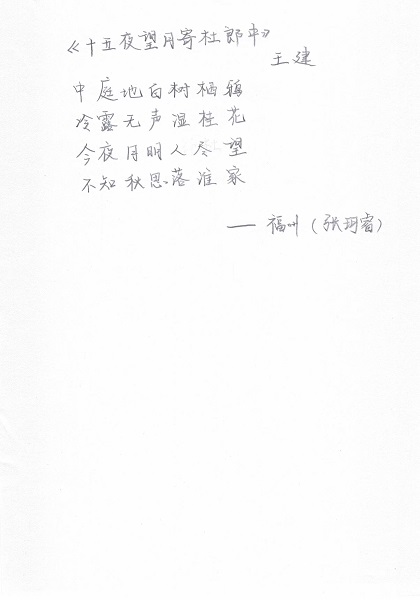 《十五夜望月寄杜郎中》
王建
中庭地白树栖鸦
冷露无声湿桂花
今夜月明人尽望
不知秋思落谁家
—— 福州（张珂睿）